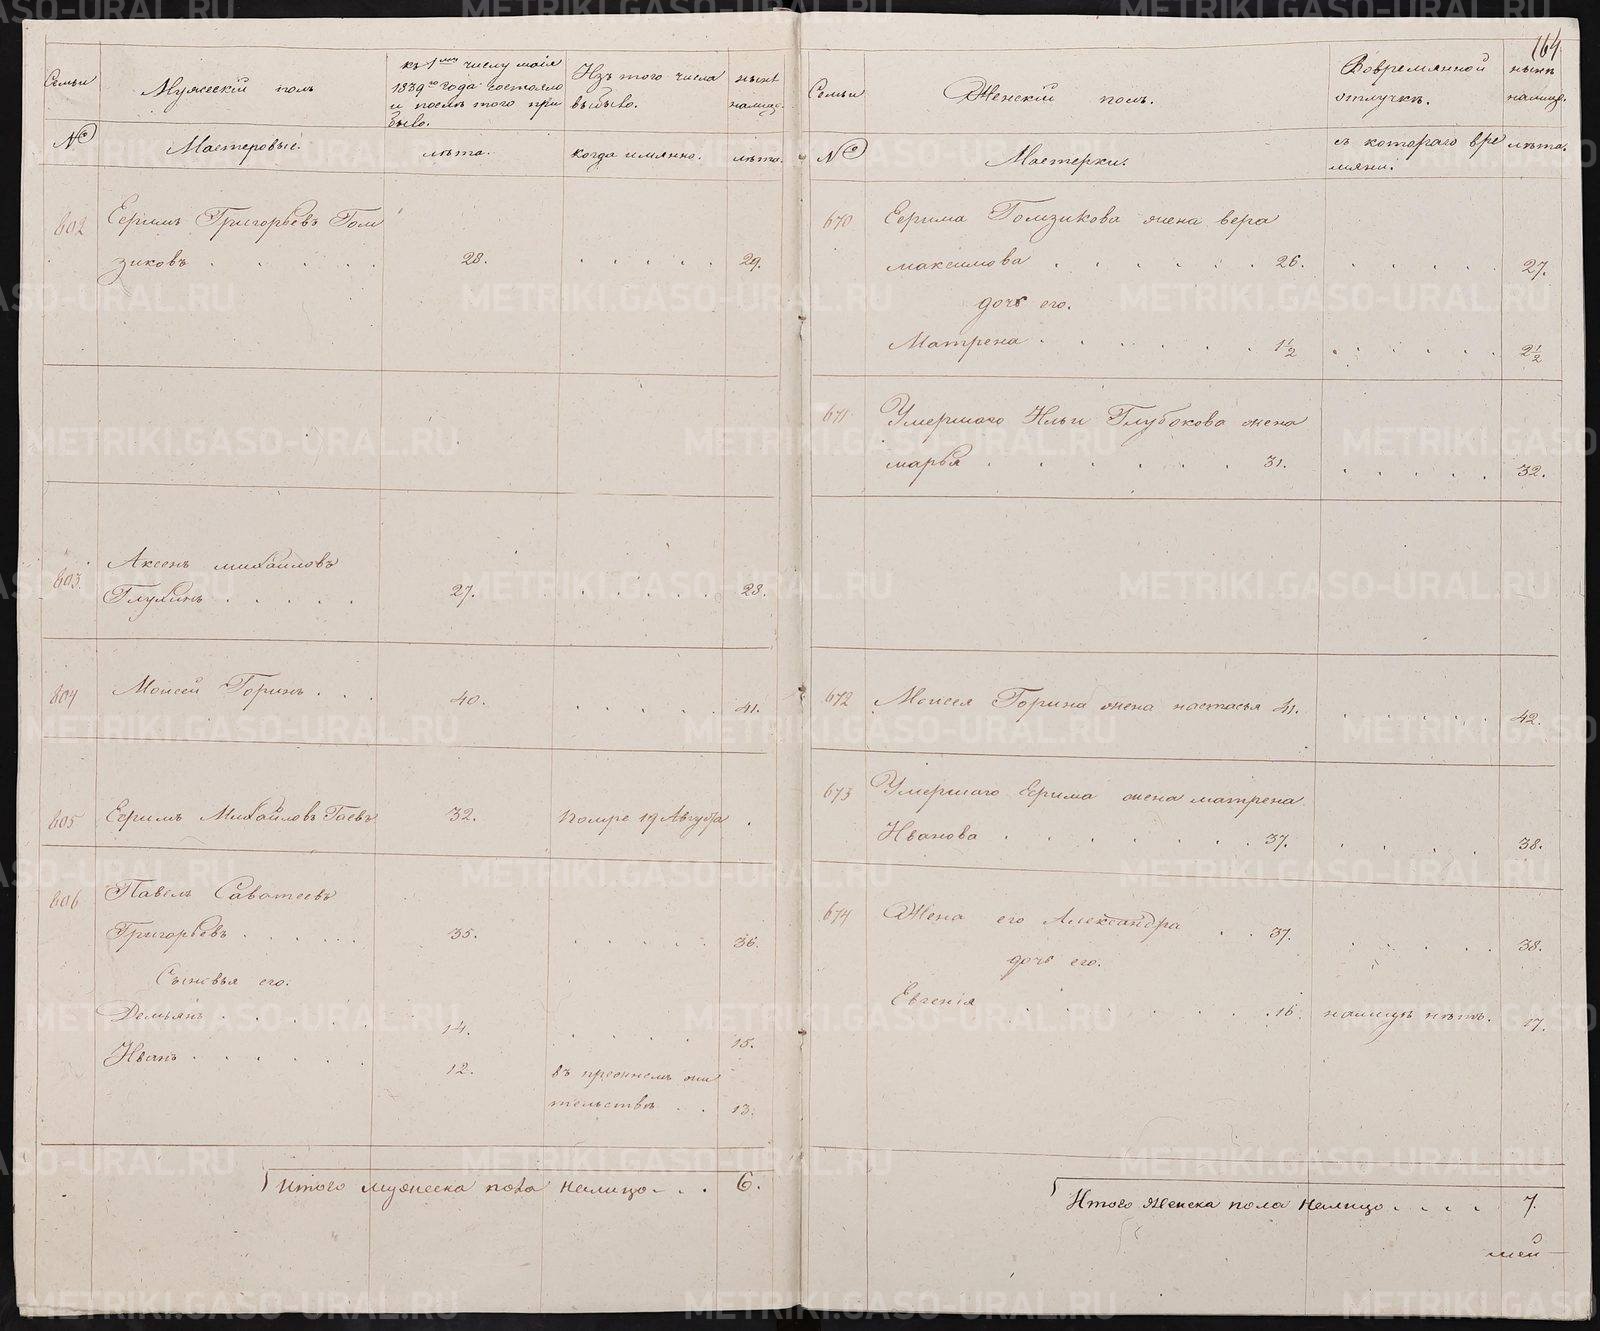 164
Семьи
Мужескiй полъ
къ 1му числу маiя
1839го года состояло
и послѣ того при
было.
Изъ того числа
выбыло.
нынѣ
налицо.
№
Мастеровые.
лѣта.
когда имянно.
лѣта.
802
Ефимъ Григорьевъ Гом
зиковъ . . . . . 28. . . . . . 29.
803.
Аксенъ михайловъ
Глухинъ . . . . . 27. . . . . . 28.
804
Моисей Горинъ . . . 40. . . . . . 41.
805
Ефимъ Михайловъ Гаевъ 32. Помре 19 Августа .
806
Павелъ Саватеевъ
Григорьевъ . . . . . 35. . . . . . 36.
Сыновья его.
Демьянъ . . . . . 14. . . . . 15.
Иванъ . . . . . 12. въ прежнемъ жи
тельствѣ . . 13.
Итого мужеска пола налицо . . . 6.
Семьи
Женскiй полъ.
Вовремянной
отлучкѣ.
нынѣ
налицо.
№
Мастерки.
съ котораго вре
мяни.
лѣта.
670
Ефима Гомзикова жена вера
максимова . . . . . . 26. . . . . . 27.
дочь его.
Матрена . . . . . . 1½ . . . . . . 2½
671
Умершаго Ильи Глубокова жена
марья . . . . . . 31. . . . . . 32.
672
Моисея Горина жена настасья 41. . . . . . 42.
673
Умершаго Ефима жена матрена
Иванова . . . . . . 37. . . . . 38.
674
Жена его Александра . . 37. . . . . . 38.
дочь его.
Евгенiя . . . . . . 16. налицѣ нѣтъ. 17.
Итого женска пола налицо . . . . 7.
METRIKI.GASO-URAL.RU